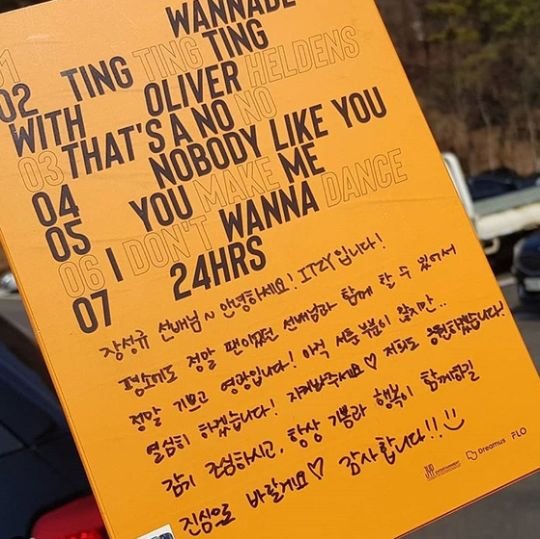 WANNABE
02 TING TING TING
WITH OLIVER HELDENS
03 THAT'S A NO NO
04 NOBODY LIKE YOU
05 YOU MAKE ME
06 I DON'T WANNA DANCE
07 24HRS
장성규 선배님~ 안녕하세요! ITZY입니다!
평소에도 정말 팬이었던 선배님과 함께 할 수 있어서
정말 기쁘고 영광입니다! 아직 서툰 부분이 많지만..
열심히 하겠습니다! 지켜봐주세요♡ 저희도 응원하겠습니다!
감기 조심하시고, 항상 기쁨과 행복이 함께하길
진심으로 바랄게요♡ 감사합니다!!
Dreamus FLO